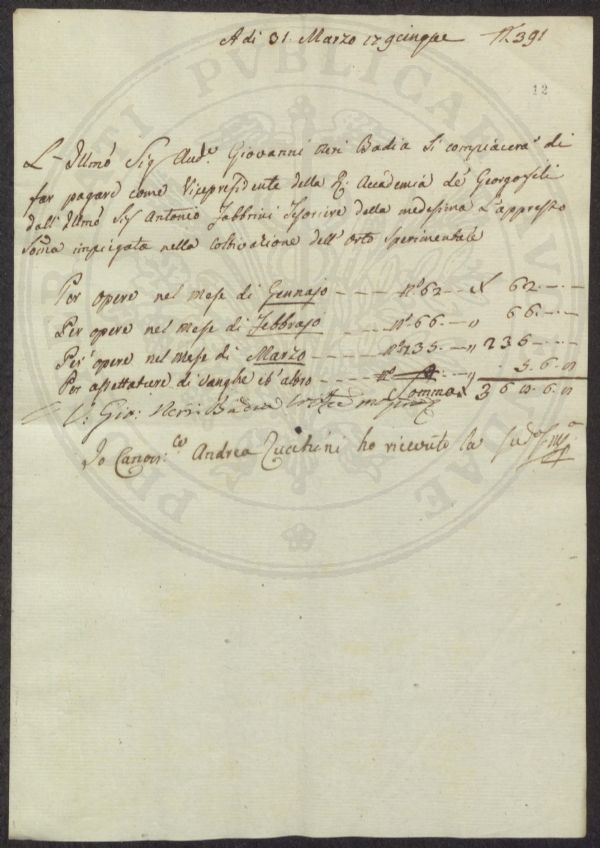 A di 31. Marzo 179cinque N. 391
12
L'Illmo Sig Aude Giovanni Neri Badia si compiacerà di
far pagare come Vicepresidente della R. Accademia de Georgofili
dall'Illmo Sig Antonio Fabbrini Tesoriere della medesima l'appresso
Soma impiegata nella coltivazione dell'Orto Sperimentale
Per opere nel mese di Gennajo - - - N° 62 - - £ 62. - . -
Per opere nel mese di Febbrajo - - - N° 66. - - " 66. - . -
Per opere nel mese di Marzo - - - " 236 - . -
Per assettature di vanghe ed altro - - - " 5. 6. 8
Somma £ 369. 6. 8
Gio: Neri Badia
Io Canon.co Andrea Zucchini ho ricevuto la
PVBLICAE